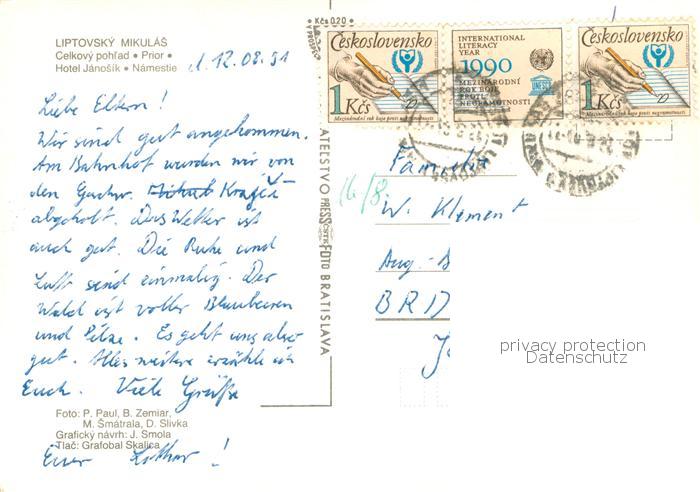 LIPTOVSKÝ MIKULÁŠ
Celkový pohľad • Prior •
Hotel Jánošík • Námestie
d. 12.08.91
Liebe Eltern!
Wir sind gut angekommen.
Am Bahnhof wurden wir von
den Geschw. Krajčí
abgeholt. Das Wetter ist
auch gut. Die Ruhe und
Luft sind einmalig. Der
Wald ist voller Blaubeeren
und Pilze. Es geht uns also
gut. Alles weitere erzähle ich
Euch. Viele Grüße
Euer Lothar!
Foto: P. Paul, B. Zemiar,
M. Šmátrala, D. Slivka
Grafický návrh: J. Smola
Tlač: Grafobal Skalica
• Kčs 0,20 •
PRESSFOTO BRATISLAVA
Československo
1 Kčs
Mezinárodní rok boje proti negramotnosti
INTERNATIONAL
LITERACY
YEAR
1990
MEZINÁRODNÍ
ROK BOJE
PROTI
NEGRAMOTNOSTI
UNESCO
Československo
1 Kčs
Mezinárodní rok boje proti negramotnosti
16/8.
Familie
W. Klement
Aug.-B
BRD
privacy protection
Datenschutz